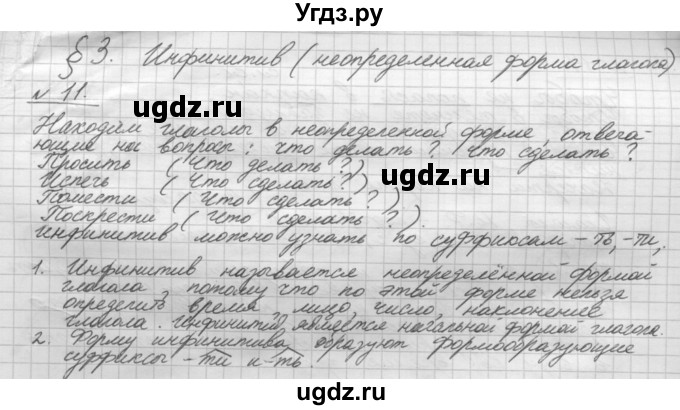 Угдз.ру
§ 3. Инфинитив (неопределенная форма глагола)
№ 11.
Находим глаголы в неопределенной форме, отвеча-
ющие на вопросы: что делать? Что сделать?
Просить (Что делать?)
Испечь (Что сделать?)
Помести (Что сделать?)
Поскрести (Что сделать?).
Инфинитив можно узнать по суффиксам -ть, -ти,
1. Инфинитив называется неопределённой формой
глагола, потому что по этой форме нельзя
определить время, лицо, число, наклонение
глагола. Инфинитив является начальной формой глагола.
2. Форму инфинитива образуют формообразующие
суффиксы -ти и -ть.
ugdz.ru
ugdz.ru
ugdz.ru
ugdz.ru
ugdz.ru